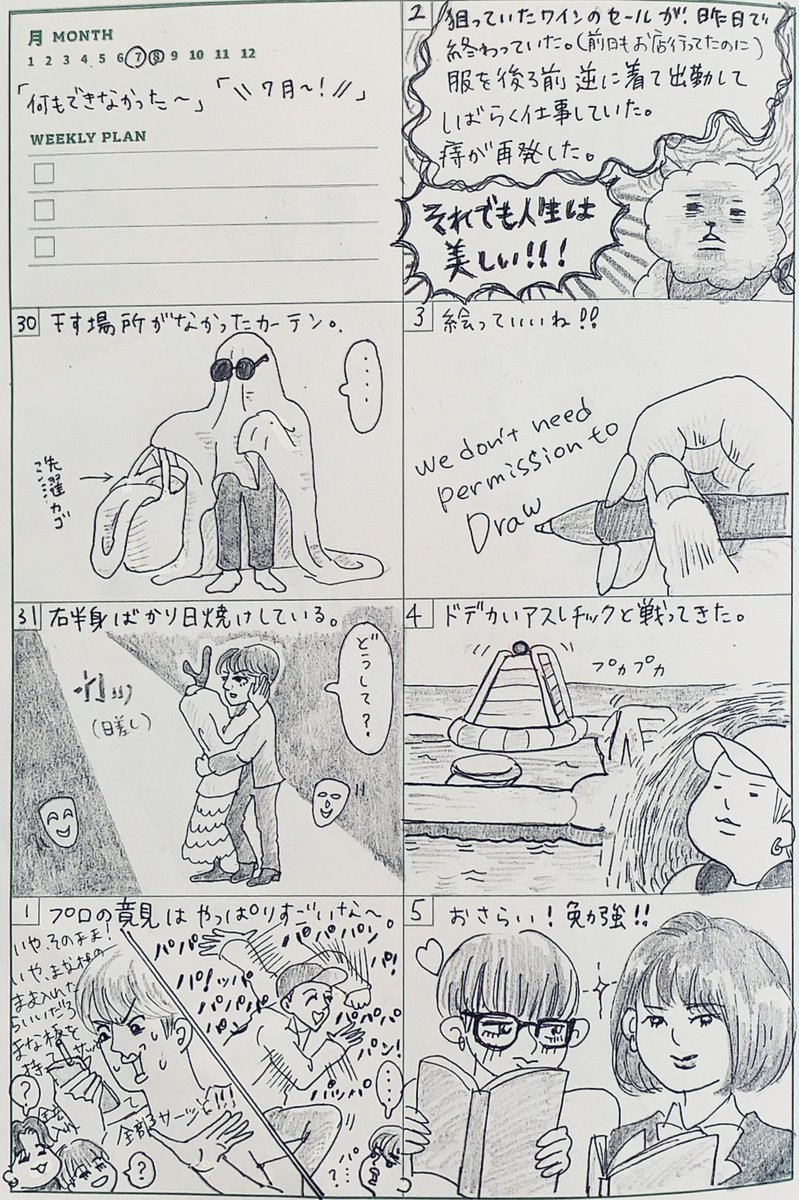 月 MONTH
1 2 3 4 5 6 7 8 9 10 11 12
「何もできなかった〜」「\\ 7月〜! //」
WEEKLY PLAN
30
干す場所がなかったカーテン。
‥‥
洗濯カゴ
31
右半身ばかり日焼けしている。
(日差し)
どうして?
1
プロの意見はやっぱりすごいな〜。
いや、そのまま!
いや、まな板の
まま入れた
らいいだろ
まな板を
持って
全部るサーッと!!!
?
?
パパパパン
パ!ッパ
パパパパ
パン
パパパ
パン!
パッパ
‥‥
2
狙っていたワインのセールが、昨日で
終わっていた。(前日もお店行ってたのに)
服を後ろ前逆に着て出勤して
しばらく仕事していた。
痔が再発した。
それでも人生は
美しい!!!
3
絵っていいね!!
we don't need
permission to
Draw
4
ドデカいアスレチックと戦ってきた。
プカプカ
5
おさらい!勉強!!